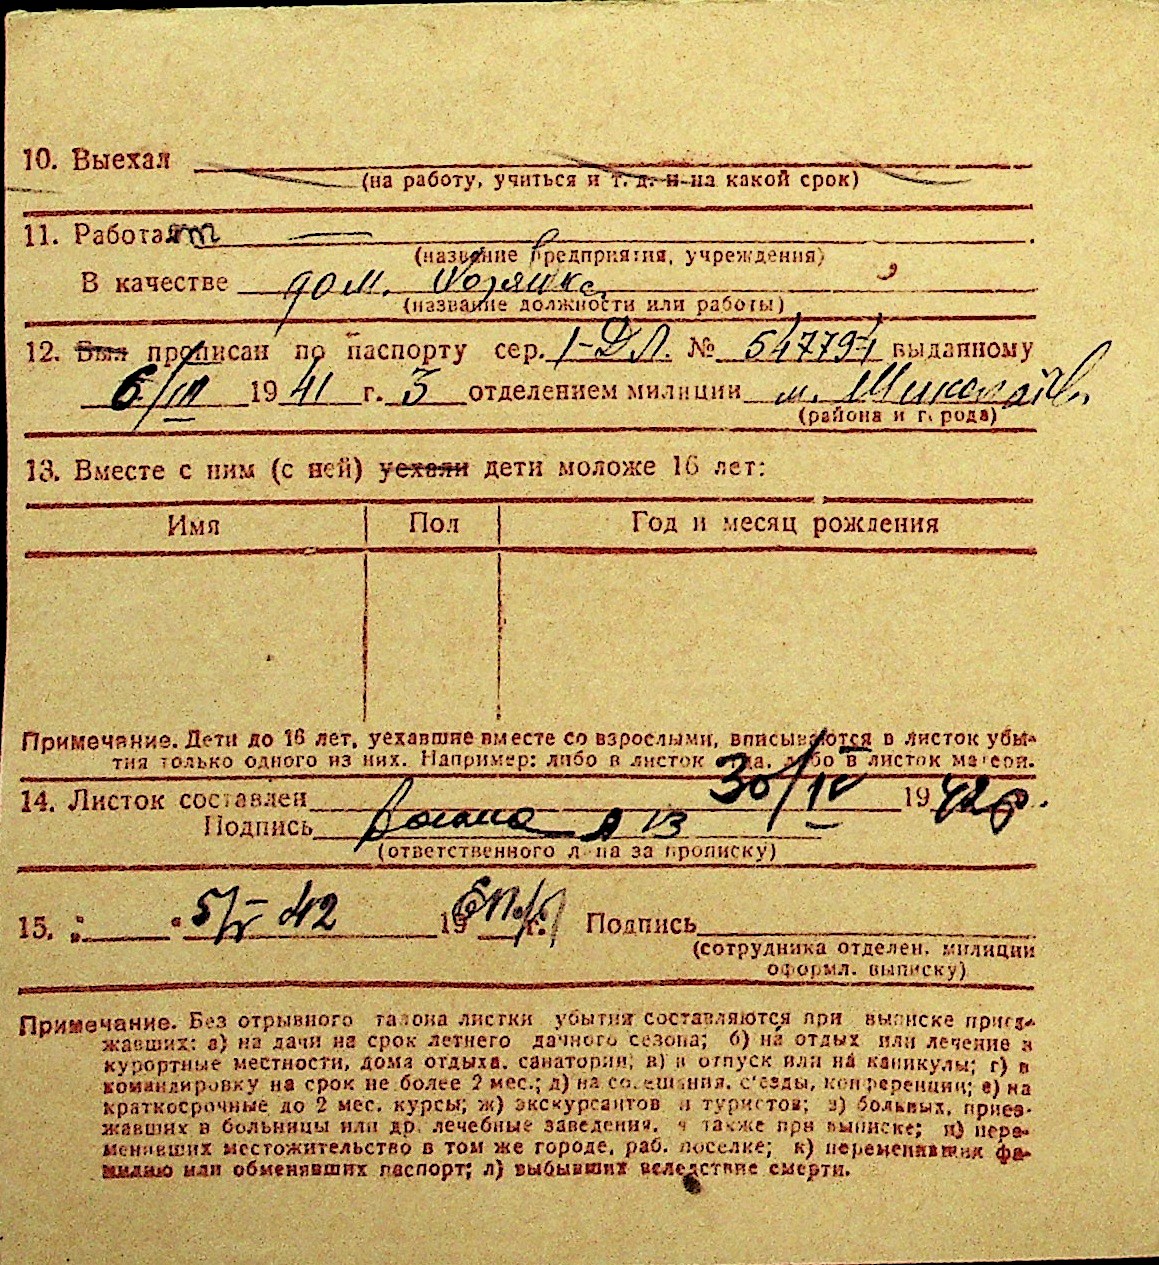 10. Выехал
(на работу, учиться и т. д. и на какой срок)
11. Работает —
(название предприятия, учреждения)
В качестве дом. хозяйка
(название должности или работы)
12. Был прописан по паспорту сер. I-ДЛ. № 547794 выданному
6/III 1941 г. 3 отделением милиции
(района и города)
13. Вместе с ним (с ней) уехали дети моложе 16 лет:
Имя Пол Год и месяц рождения
Примечание. Дети до 16 лет, уехавшие вместе со взрослыми, вписываются в листок убы-
тия только одного из них. Например: либо в листок отца, либо в листок матери.
14. Листок составлен 30/IV 1942 г.
Подпись
(ответственного лица за прописку)
15. „ “ 5/V 42 19 г. Подпись
(сотрудника отделен. милиции
оформл. выписку)
Примечание. Без отрывного талона листки убытия составляются при выписке приез-
жавших: а) на дачи на срок летнего дачного сезона; б) на отдых или лечение в
курортные местности, дома отдыха, санатории; в) в отпуск или на каникулы; г) в
командировку на срок не более 2 мес.; д) на совещания, с'езды, конференции; е) на
краткосрочные до 2 мес. курсы; ж) экскурсантов и туристов; з) больных, приез-
жавших в больницы или др. лечебные заведения, а также при выписке; и) пере-
менивших местожительство в том же городе, раб. поселке; к) переменивших фа-
милию или обменявших паспорт; л) выбывших вследствие смерти.